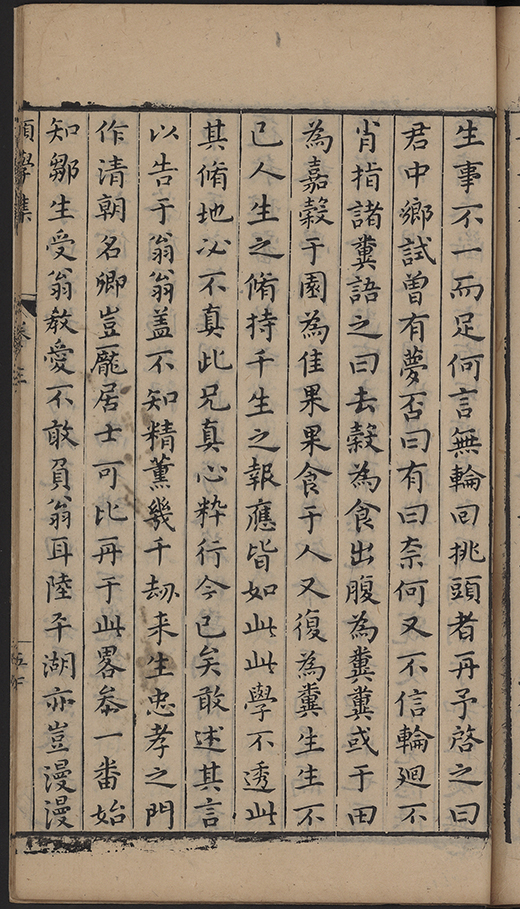 生事不一而足何言無輪回挑頭者再予啓之曰
君中鄉試曾有夢否曰有曰奈何又不信輪廻不
肖指諸糞語之曰去穀為食出腹為糞糞或于田
為嘉穀于園為佳果果食于人又復為糞生生不
已人生之脩持千生之報應皆如此此學不透此
其脩地必不真此兄真心粹行今已矣敢述其言
以告于翁翁盖不知精薰幾千刼来生忠孝之門
作清朝名卿豈龎居士可比再于此畧叅一番始
知鄒生受翁教愛不敢負翁耳陸平湖亦豈漫漫
願學集
卷之三